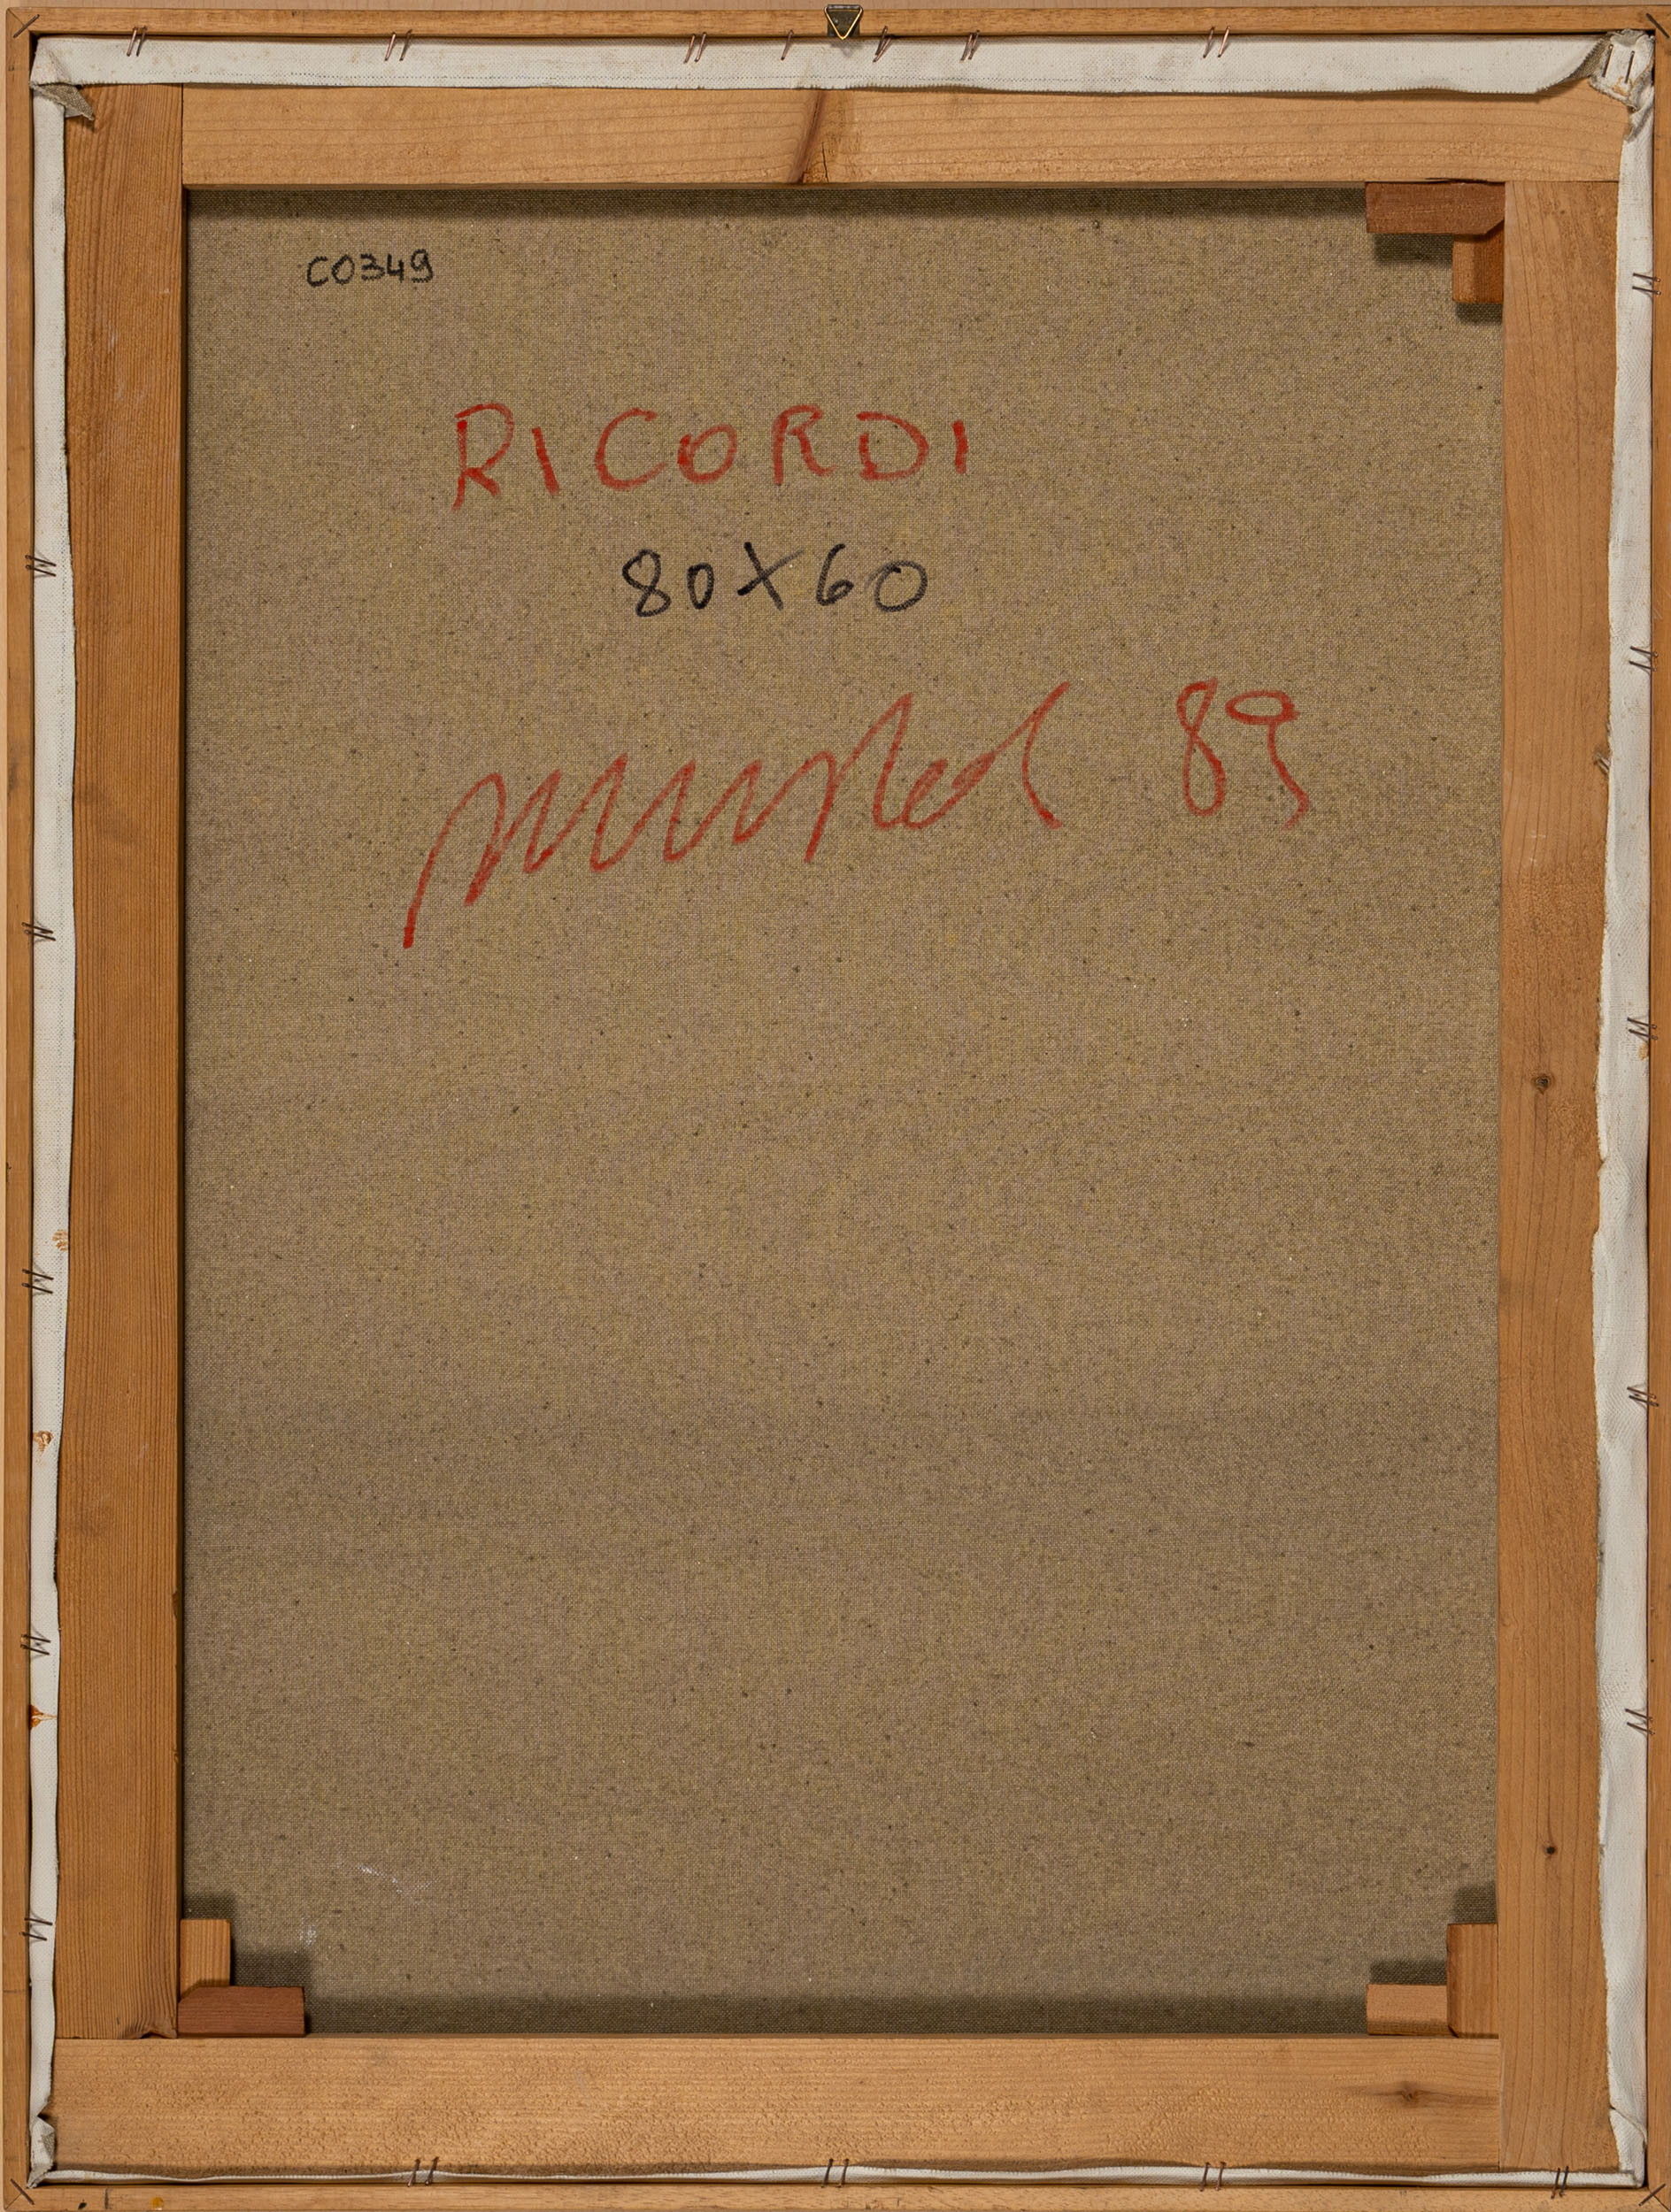 C0349
RICORDI
80X60
89